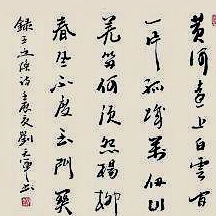 黄河遠上白雲間
一片孤城萬仞山
羌笛何須怨楊柳
春風不度玉門關
録王之渙詩